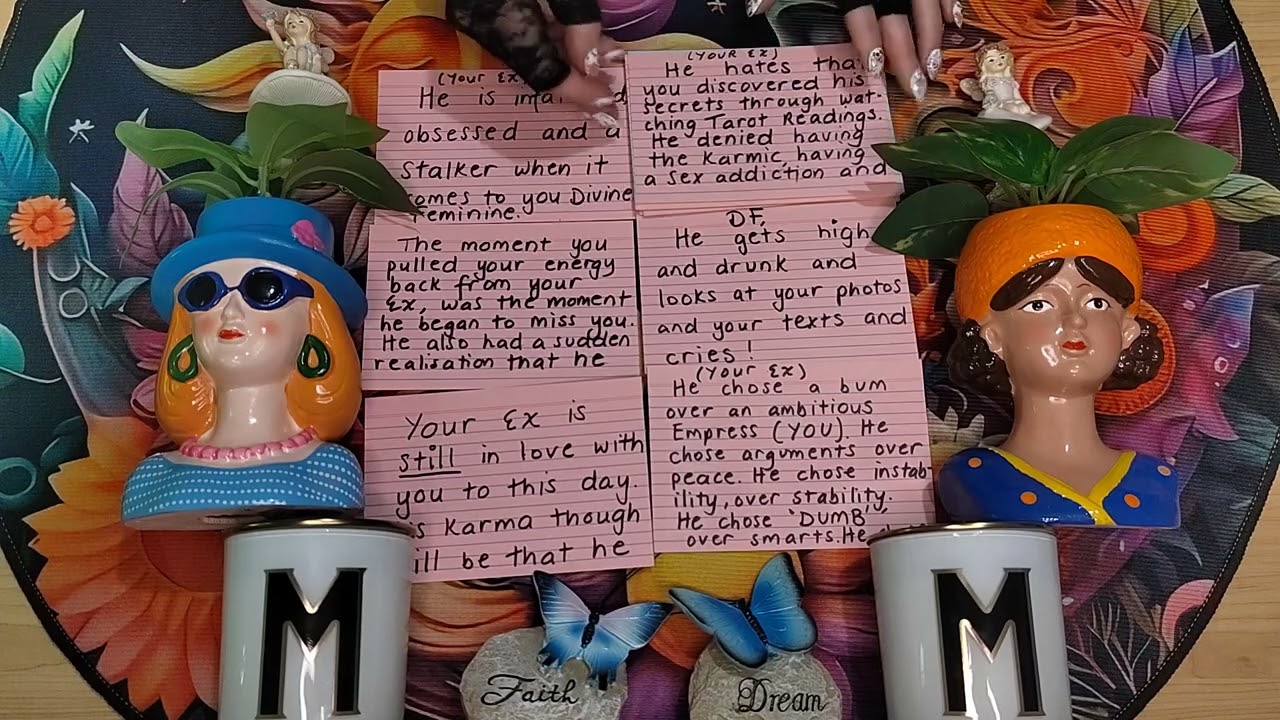 (Your Ex
He is
obsessed and a
Stalker when it
comes to you Divine
Feminine.
(YOUR Ex)
He hates that
you discovered his
secrets through wat-
ching Tarot Readings.
He denied having
the Karmic, having
a sex addiction and
The moment you
pulled your energy
back from your
Ex, was the moment
he began to miss you.
He also had a sudden
realisation that he
DF,
He gets high
and drunk and
looks at your photos
and your texts and
cries!
Your Ex is
still in love with
you to this day.
Karma though
will be that he
(Your Ex)
He chose a bum
over an ambitious
Empress (YOU). He
chose arguments over
peace. He chose instab-
ility, over stability.
He chose 'DUMB',
over smarts. He
M
M
Faith
Dream